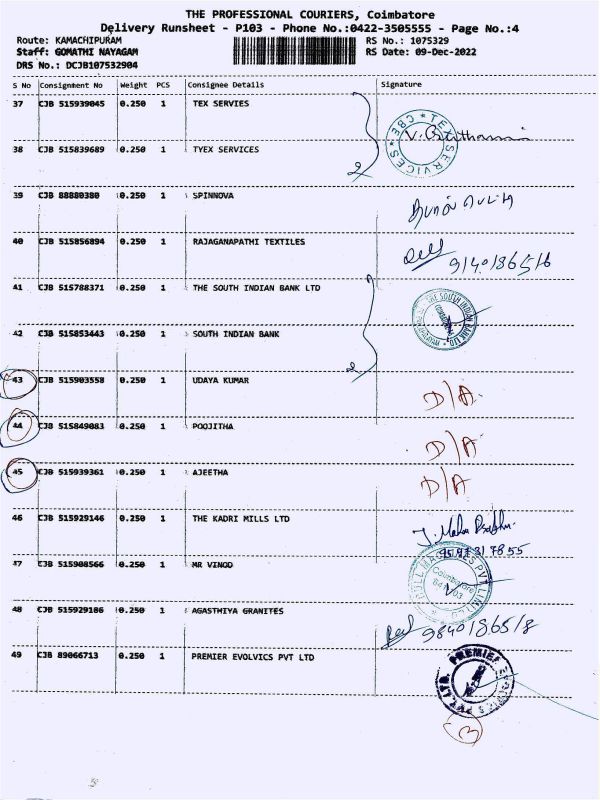 THE PROFESSIONAL COURIERS, Coimbatore
Delivery Runsheet - P103 - Phone No.:0422-3505555 - Page No.:4
Route: KAMACHIPURAM RS No.: 1075329
Staff: GOMATHI NAYAGAM RS Date: 09-Dec-2022
DRS No.: DCJB107532904
S No Consignment No Weight PCS Consignee Details Signature
37 CJB 515939045 0.250 1 TEX SERVIES
TEX SERVICES * CBE *
38 CJB 515839689 0.250 1 TYEX SERVICES
39 CJB 88880380 0.250 1 SPINNOVA
40 CJB 515856894 0.250 1 RAJAGANAPATHI TEXTILES
9140186516
41 CJB 515788371 0.250 1 THE SOUTH INDIAN BANK LTD
THE SOUTH INDIAN BANK LTD.
42 CJB 515853443 0.250 1 SOUTH INDIAN BANK
43 CJB 515903558 0.250 1 UDAYA KUMAR
D/A
44 CJB 515849083 0.250 1 POOJITHA
D/A
45 CJB 515939361 0.250 1 AJEETHA
D/A
46 CJB 515929146 0.250 1 THE KADRI MILLS LTD
47 CJB 515908566 0.250 1 MR VINOD
Coimbatore
48 CJB 515929186 0.250 1 AGASTHIYA GRANITES
9840186518
49 CJB 89066713 0.250 1 PREMIER EVOLVICS PVT LTD
PREMIER EVOLVICS PVT. LTD.
3